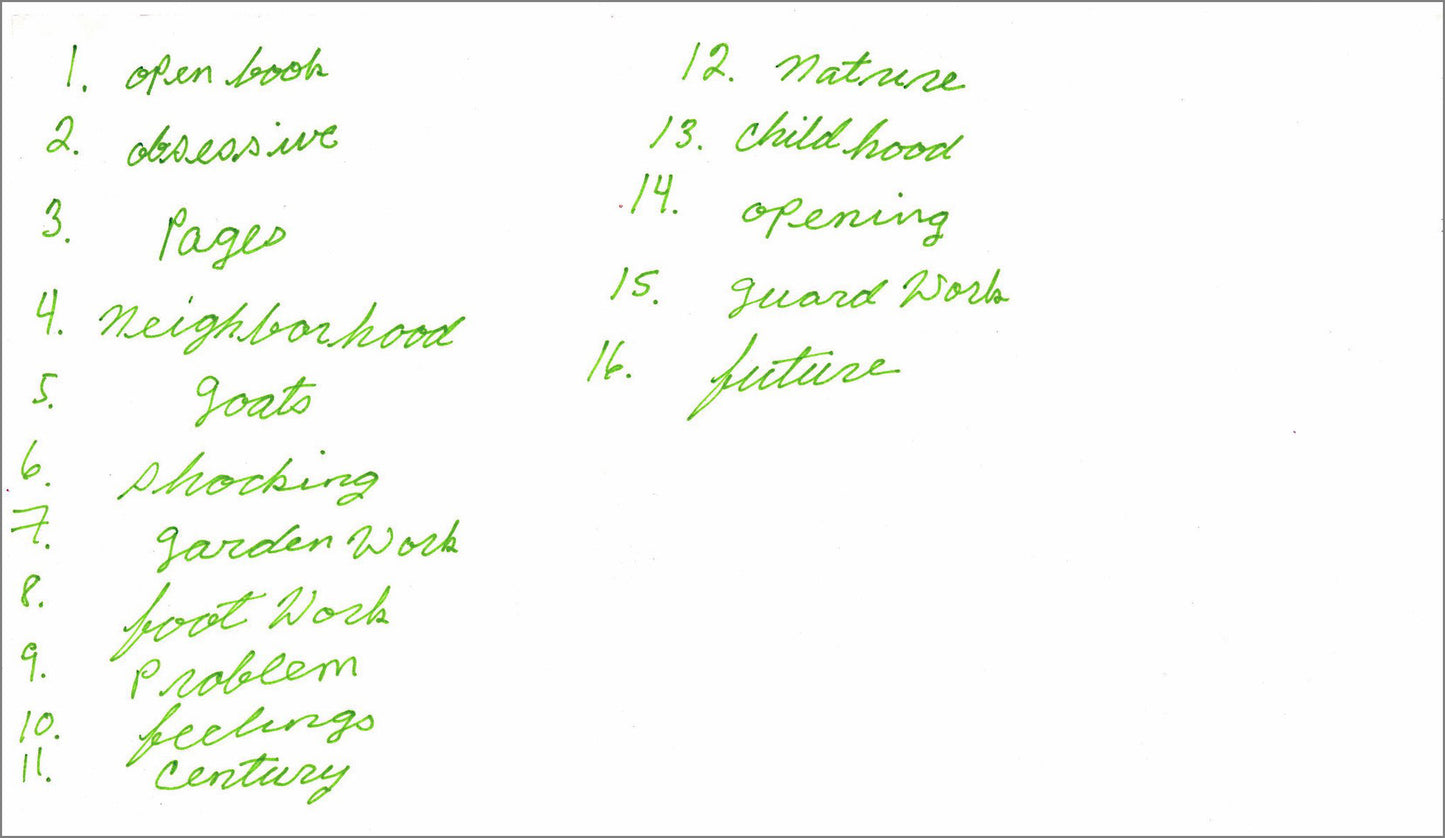 1. open book
2. obsessive
3. Pages
4. Neighborhood
5. goats
6. shocking
7. garden Work
8. foot Work
9. Problem
10. feelings
11. Century
12. Nature
13. Childhood
14. opening
15. guard Work
16. future